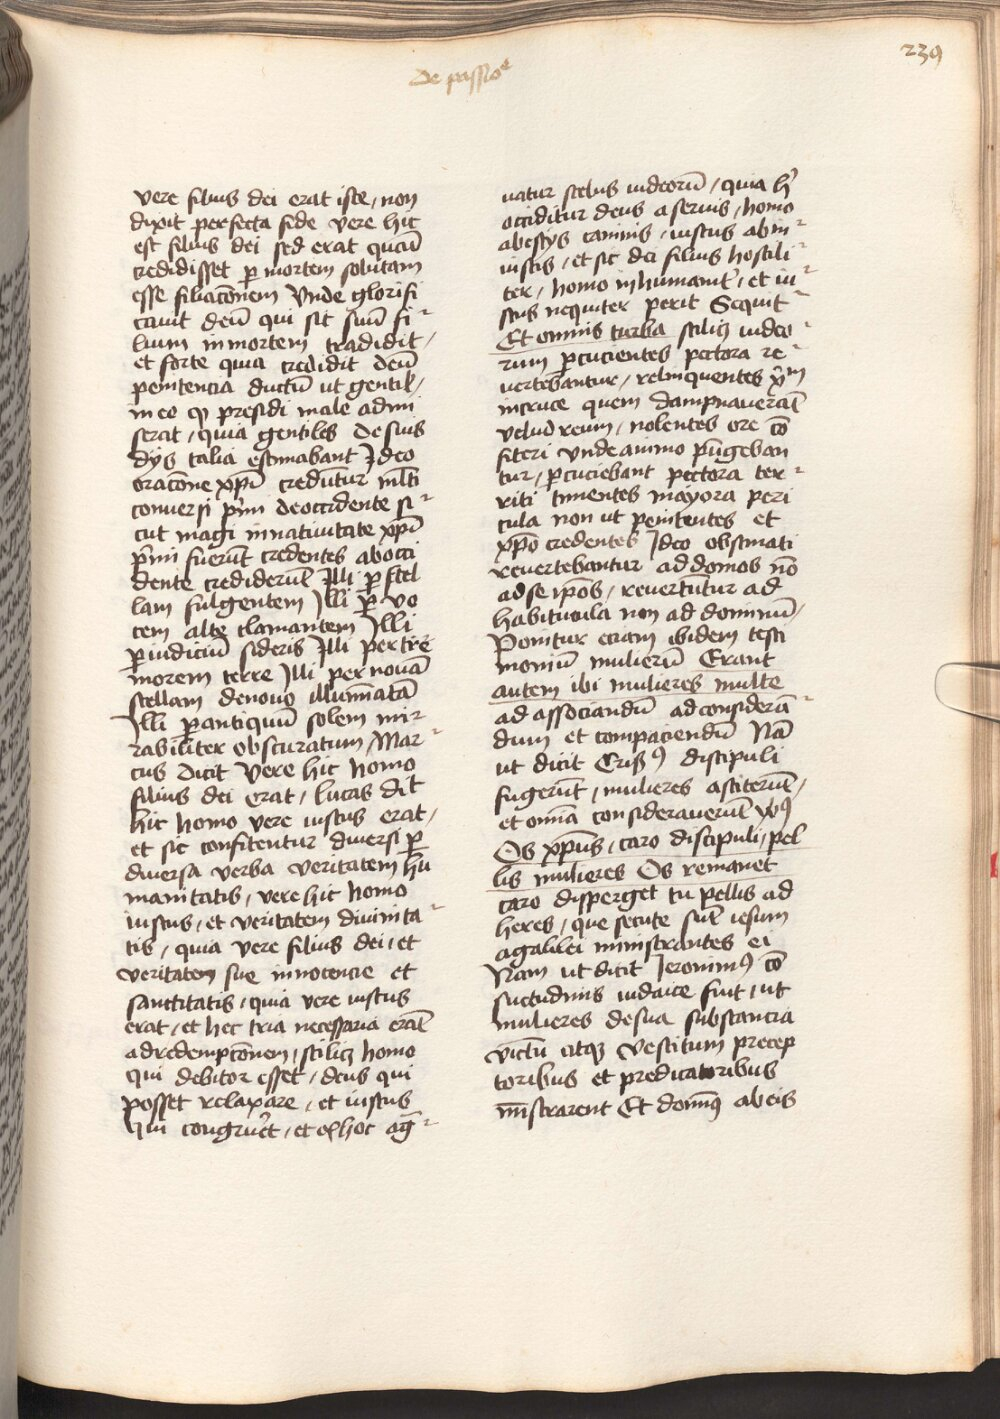 De passioe
239
vere filius dei erat iste / non
dixit perfecta fide vere hic
est filius dei sed erat quasi
credidisset p mortem solutam
esse filiacōnem Unde glorifi
cauit deū qui sic suū fi-
lium in mortem tradidit /
et forte quia credidit deū
penitencia ductū ut gentil /
in eo qp presidi male admi
serat / quia gentiles de suis
dijs talia estimabant Ideo
oracōne xpī credūtur mlti
conuersi prmi de occidente si-
cut magi in natiuitate xpī
prmi fuerūt credentes ab occi
dente crediderūt Illi p stel
lam fulgentem Illi p vo
cem alte clamantem Illi
p iudiciū sideris Illi per tre
morem terre Illi per nouā
stellam denouo illuminatā
Illi p antiquū solem mi-
rabiliter obscuratum / Mar-
cus dicit Vere hic homo
filius dei erat / lucas dit
hic homo vere iustus erat /
et sic confitentur diuersi p
diuersa verba veritatem hu
manitatis / vere hic homo
iustus / et veritatem diuinita-
tis / quia vere filius dei / et
veritatem sue innocencie et
sanctitatis / quia vere iustus
erat / et hec tria necessaria erāt
ad redempcōnem / scilicz homo
qui debitor esset / deus qui
posset relaxare / et iustus
qui congruret / et ex hoc ag-
uatur scelus iudeorū / quia h
occiditur deus a seruis / homo
a bestijs caninis / iustus ab in-
iustis / et sic dei filius hostili-
ter / homo inhumanit / et iu-
stus nequiter perit Sequit-
Et omnis turba scilicz iudeo-
rum pcucientes pectora re-
uertebantur / relinquentes xpm
in cruce quem dampnauerāt
velud reum / nolentes ore cō
fiteri unde animo pūgeban
tur / pcuciebant pectora ter-
riti timentes mayora peri
cula non ut penitentes et
xpō credentes Ideo obstinati
reuertebantur ad domos nō
ad se ipōs / reuertūtur ad
habitacula non ad dominū /
Ponitur eciam ibidem testi
moniū mulierū Erant
autem ibi mulieres multe
ad associandū ad considerā-
dum et compaciendū Nā
ut dicit Cris9 discipuli
fugerūt / mulieres astiterūt /
et omīa considerauerūt
Os xpūs / caro discipuli / pel
lis mulieres Os remanet
caro disperget tu pellis ad
heres / que secute sūt iesum
a galilei ministrantes ei
Nam ut dicit Jeronim9 cō
suetudinis iudaice fuit / ut
mulieres de sua substancia
victū atqz vestitum precep
toribus et predicatoribus
mīstrarent Et domin9 ab eis